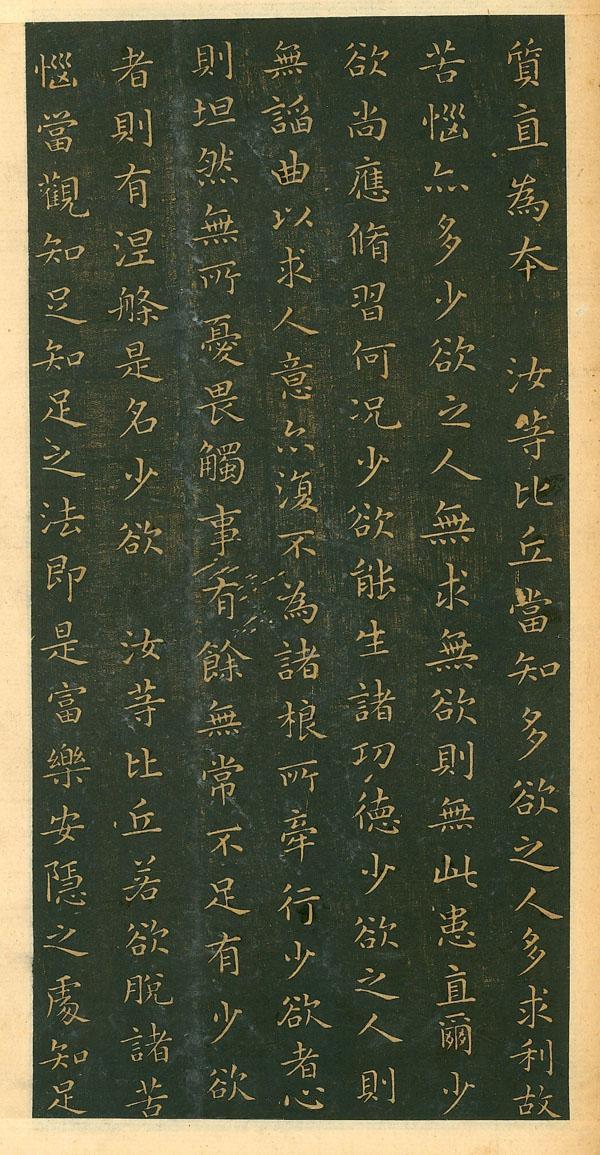 質直為本　汝等比丘當知多欲之人多求利故
苦惱亦多少欲之人無求無欲則無此患直爾少
欲尚應脩習何況少欲能生諸功德少欲之人則
無謟曲以求人意亦復不為諸根所牽行少欲者心
則坦然無所憂畏觸事有餘無常不足有少欲
者則有涅槃是名少欲　汝等比丘若欲脫諸苦
惱當觀知足知足之法即是富樂安隱之處知足